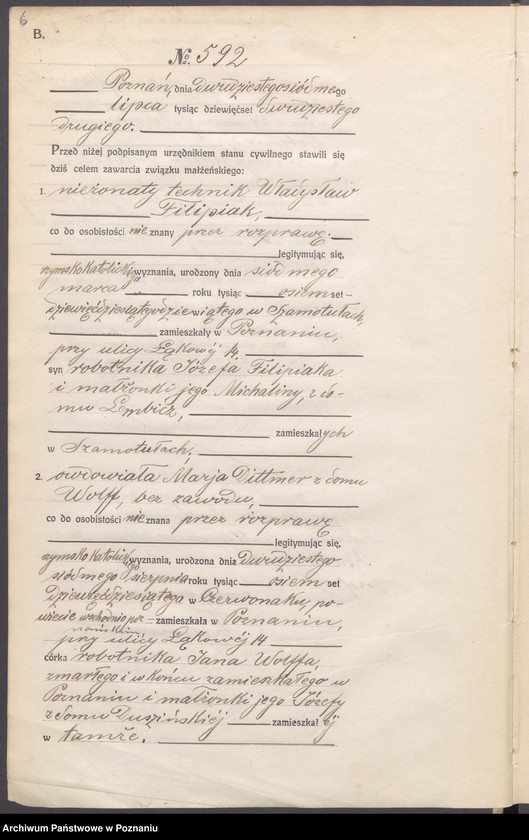 6
B.
№. 592
Poznań, dnia Dwudziestegosiódmego
lipca tysiąc dziewięćset dwudziestego
drugiego.
Przed niżej podpisanym urzędnikiem stanu cywilnego stawili się
dziś celem zawarcia związku małżeńskiego:
1. nieżonaty technik Władysław
Filipiak,
co do osobistości nieznany przez rozprawę.
legitymując się,
rzymsko katolickiego wyznania, urodzony dnia siódmego
marca roku tysiąc osiemset
dziewięćdziesiątegodziewiątego w Szamotułach,
zamieszkały w Poznaniu,
przy ulicy Łąkowéj 14,
syn robotnika Józefa Filipiaka
i małżonki jego Michaliny, z do-
mu Lembicz,
zamieszkałych
w Szamotułach;
2. owdowiała Marja Dittmer z domu
Wolff, bez zawodu,
co do osobistości nieznana przez rozprawę
legitymując się,
rzymsko katolickiego wyznania, urodzona dnia Dwudziestego
siódmego sierpnia roku tysiąc osiemset
dziewięćdziesiątego w Czerwonaku, po-
wiecie wschodnio poz- zamieszkała w Poznaniu,
nańskim
przy ulicy Łąkowéj 14
córka robotnika Jana Wolffa,
zmarłego i w końcu zamieszkałego w
Poznaniu i małżonki jego Józefy
z domu Duszyńskiéj zamieszkałéj
w tamże.
Archiwum Państwowe w Poznaniu